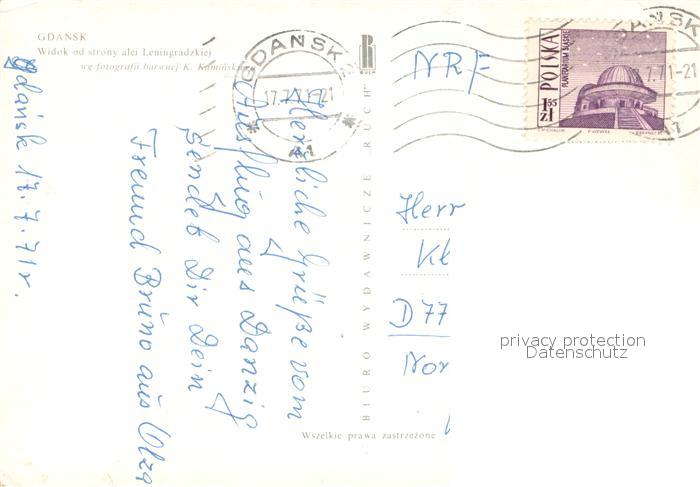 GDAŃSK
Widok od strony alei Leningradzkiej
wg fotografii barwnej K. Kamińskiego
Gdańsk 17.7.71r.
Herzliche Grüße vom
Ausflug aus Danzig
sendet Dir Dein
Freund Bruno aus Olza
BIURO WYDAWNICZE „RUCH”
Wszelkie prawa zastrzeżone
GDAŃSK
17.7.71-21
GDAŃSK
7.71-21
POLSKA
PLANETARIUM ŚLĄSKIE
1.55
zł
NRF
Herr
Kl
D 77
Nor
privacy protection
Datenschutz